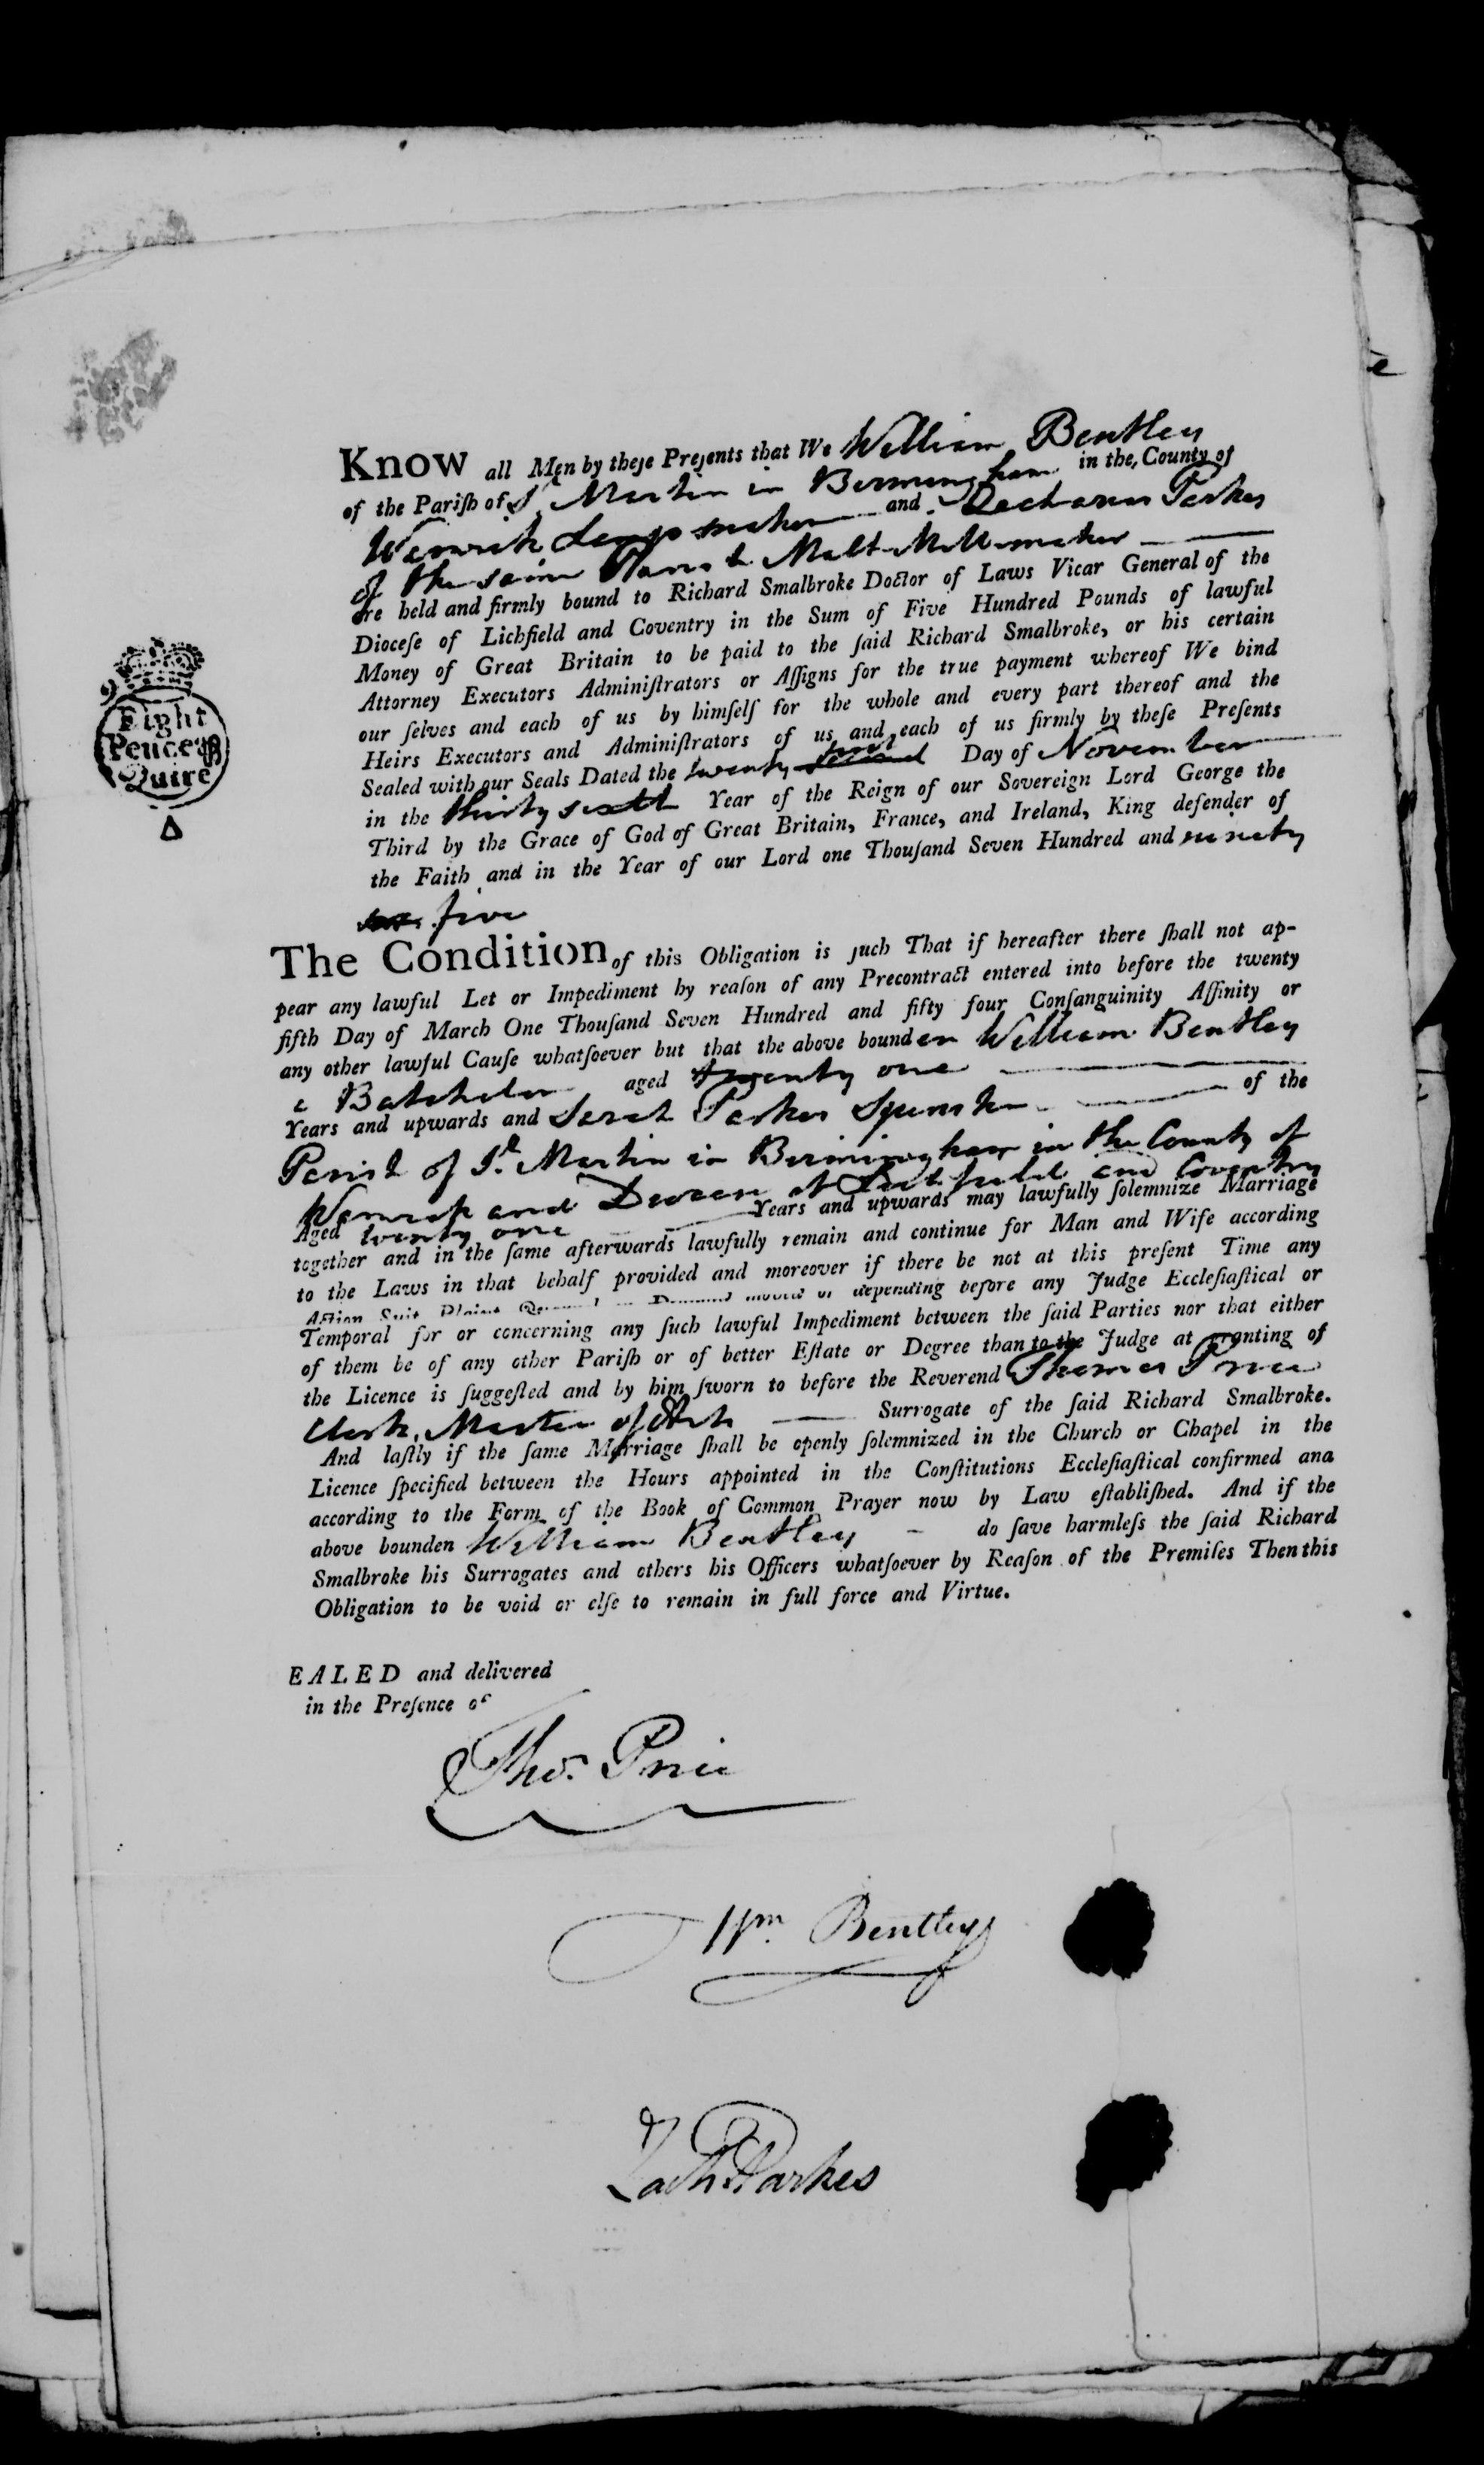 Eight
Pence ⅌
Quire
Know all Men by theſe Preſents that We William Bentley
of the Pariſh of St. Martin in Birmingham in the County of
Warwick Lamp maker and Zacharias Parkes
of the same Parish Malt Mill maker
are held and firmly bound to Richard Smalbroke Doctor of Laws Vicar General of the
Dioceſe of Lichfield and Coventry in the Sum of Five Hundred Pounds of lawful
Money of Great Britain to be paid to the ſaid Richard Smalbroke, or his certain
Attorney Executors Adminiſtrators or Aſſigns for the true payment whereof We bind
our ſelves and each of us by himſelf for the whole and every part thereof and the
Heirs Executors and Adminiſtrators of us and each of us firmly by theſe Preſents
Sealed with our Seals Dated the twenty second first Day of November
in the thirty sixth Year of the Reign of our Sovereign Lord George the
Third by the Grace of God of Great Britain, France, and Ireland, King defender of
the Faith and in the Year of our Lord one Thouſand Seven Hundred and ninety
five
The Condition of this Obligation is ſuch That if hereafter there ſhall not ap-
pear any lawful Let or Impediment by reaſon of any Precontract entered into before the twenty
fifth Day of March One Thouſand Seven Hundred and fifty four Conſanguinity Affinity or
any other lawful Cauſe whatſoever but that the above bounden William Bentley
a Batchelor aged twenty one
Years and upwards and Sarah Parkes Spinster of the
Parish of St. Martin in Birmingham in the County of
Warwick and Diocese of Lichfield and Coventry
Aged twenty one Years and upwards may lawfully ſolemnize Marriage
together and in the ſame afterwards lawfully remain and continue for Man and Wife according
to the Laws in that behalf provided and moreover if there be not at this preſent Time any
Action Suit Plaint or depending before any Judge Eccleſiaſtical or
Temporal for or concerning any ſuch lawful Impediment between the ſaid Parties nor that either
of them be of any other Pariſh or of better Eſtate or Degree than to the Judge at granting of
the Licence is ſuggeſted and by him ſworn to before the Reverend Thomas Price
Clerk, Master of Arts Surrogate of the ſaid Richard Smalbroke.
And laſtly if the ſame Marriage ſhall be openly ſolemnized in the Church or Chapel in the
Licence ſpecified between the Hours appointed in the Conſtitutions Eccleſiaſtical confirmed and
according to the Form of the Book of Common Prayer now by Law eſtabliſhed. And if the
above bounden William Bentley do ſave harmleſs the ſaid Richard
Smalbroke his Surrogates and others his Officers whatſoever by Reaſon of the Premiſes Then this
Obligation to be void or elſe to remain in full force and Virtue.
EALED and delivered
in the Preſence of
Tho. Price
Wm. Bentley
Zach Parkes